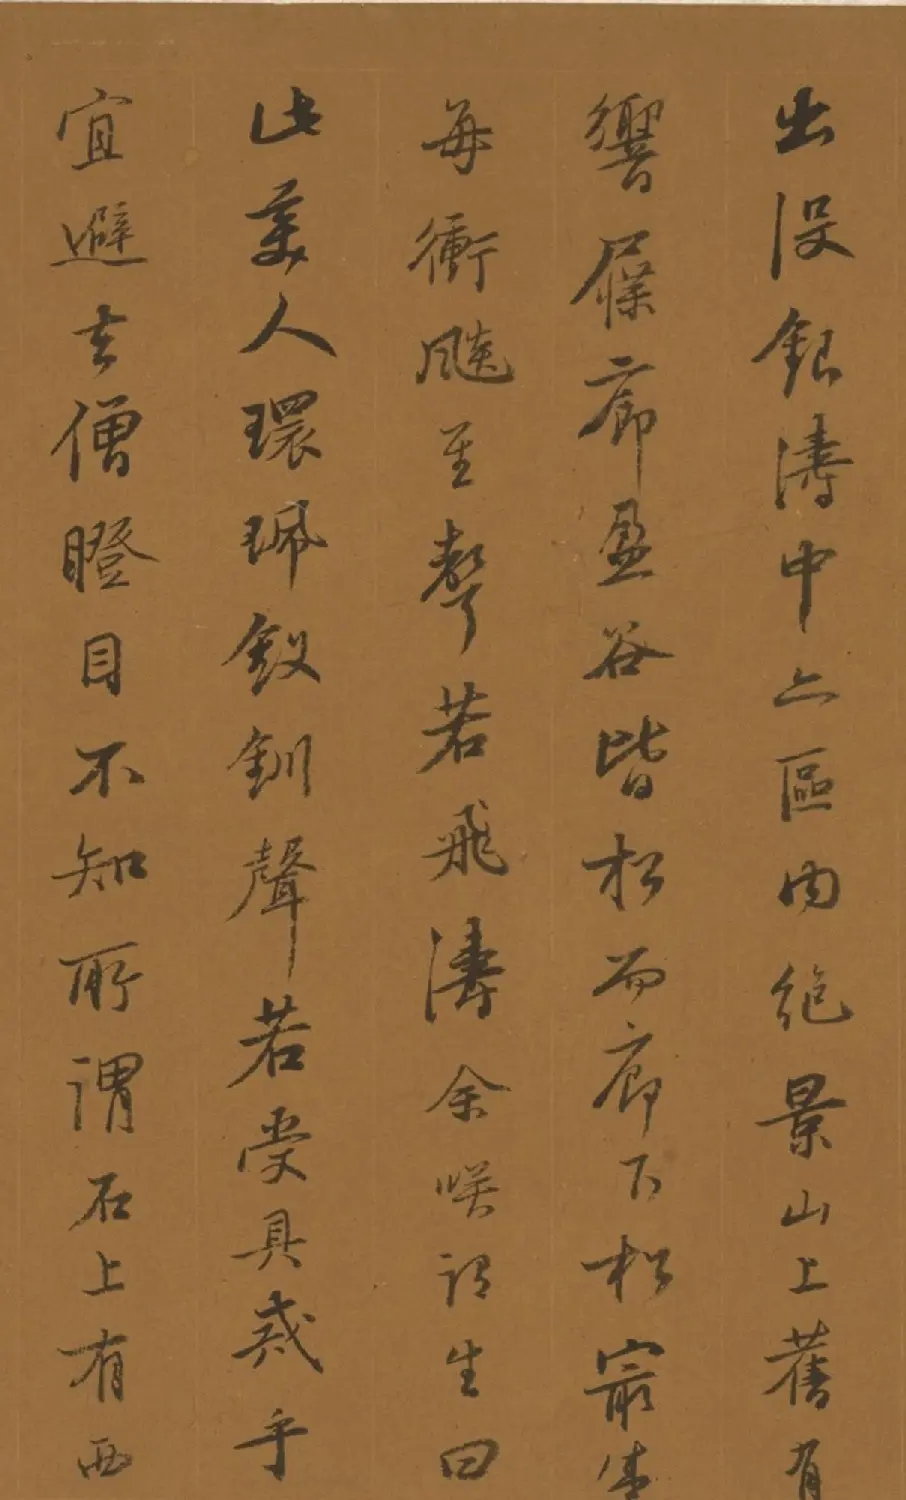 出沒銀濤中亦區內絕景山上舊有
響屧廊盈谷皆松而廊下松最佳
每衝飈至聲若飛濤余咲謂生曰
此美人環珮釵釧聲若受具戒乎
宜避去僧瞪目不知所謂石上有西